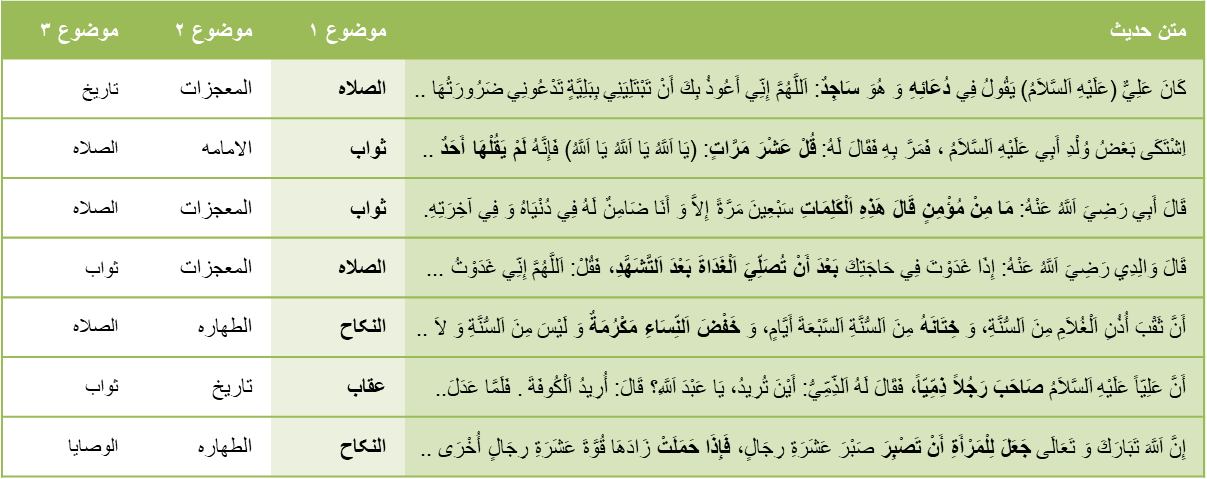 متن حدیث موضوع ۱ موضوع ۲ موضوع ۳
كَانَ عَلِيٌّ (عَلَيْهِ اَلسَّلاَمُ) يَقُولُ فِي دُعَائِهِ وَ هُوَ سَاجِدٌ: اَللَّهُمَّ إِنِّي أَعُوذُ بِكَ أَنْ تَبْتَلِيَنِي بِبَلِيَّةٍ تَدْعُونِي ضَرُورَتُهَا .. الصلاه المعجزات تاریخ
اِشْتَكَى بَعْضُ وُلْدِ أَبِي عَلَيْهِ اَلسَّلاَمُ ، فَمَرَّ بِهِ فَقَالَ لَهُ: قُلْ عَشْرَ مَرَّاتٍ: (يَا اَللَّهُ يَا اَللَّهُ يَا اَللَّهُ) فَإِنَّهُ لَمْ يَقُلْهَا أَحَدٌ .. ثواب الامامه الصلاه
قَالَ أَبِي رَضِيَ اَللَّهُ عَنْهُ: مَا مِنْ مُؤْمِنٍ قَالَ هَذِهِ اَلْكَلِمَاتِ سَبْعِينَ مَرَّةً إِلاَّ وَ أَنَا ضَامِنٌ لَهُ فِي دُنْيَاهُ وَ فِي آخِرَتِهِ. ثواب المعجزات الصلاه
قَالَ وَالِدِي رَضِيَ اَللَّهُ عَنْهُ: إِذَا غَدَوْتَ فِي حَاجَتِكَ بَعْدَ أَنْ تُصَلِّيَ اَلْغَدَاةَ بَعْدَ اَلتَّشَهُّدِ، فَقُلْ: اَللَّهُمَّ إِنِّي غَدَوْتُ ... الصلاه المعجزات ثواب
أَنَّ ثَقْبَ أُذُنِ اَلْغُلاَمِ مِنَ اَلسُّنَّةِ، وَ خِتَانَهُ مِنَ اَلسُّنَّةِ اَلسَّبْعَةَ أَيَّامٍ، وَ خَفْضَ اَلنِّسَاءِ مَكْرُمَةٌ وَ لَيْسَ مِنَ اَلسُّنَّةِ وَ لاَ .. النکاح الطهاره الصلاه
أَنَّ عَلِيّاً عَلَيْهِ اَلسَّلاَمُ صَاحَبَ رَجُلاً ذِمِّيّاً، فَقَالَ لَهُ اَلذِّمِّيُّ: أَيْنَ تُرِيدُ، يَا عَبْدَ اَللَّهِ؟ قَالَ: أُرِيدُ اَلْكُوفَةَ . فَلَمَّا عَدَلَ.. عقاب تاریخ ثواب
إِنَّ اَللَّهَ تَبَارَكَ وَ تَعَالَى جَعَلَ لِلْمَرْأَةِ أَنْ تَصْبِرَ صَبْرَ عَشَرَةِ رِجَالٍ، فَإِذَا حَمَلَتْ زَادَهَا قُوَّةَ عَشَرَةِ رِجَالٍ أُخْرَى .. النکاح الطهاره الوصایا